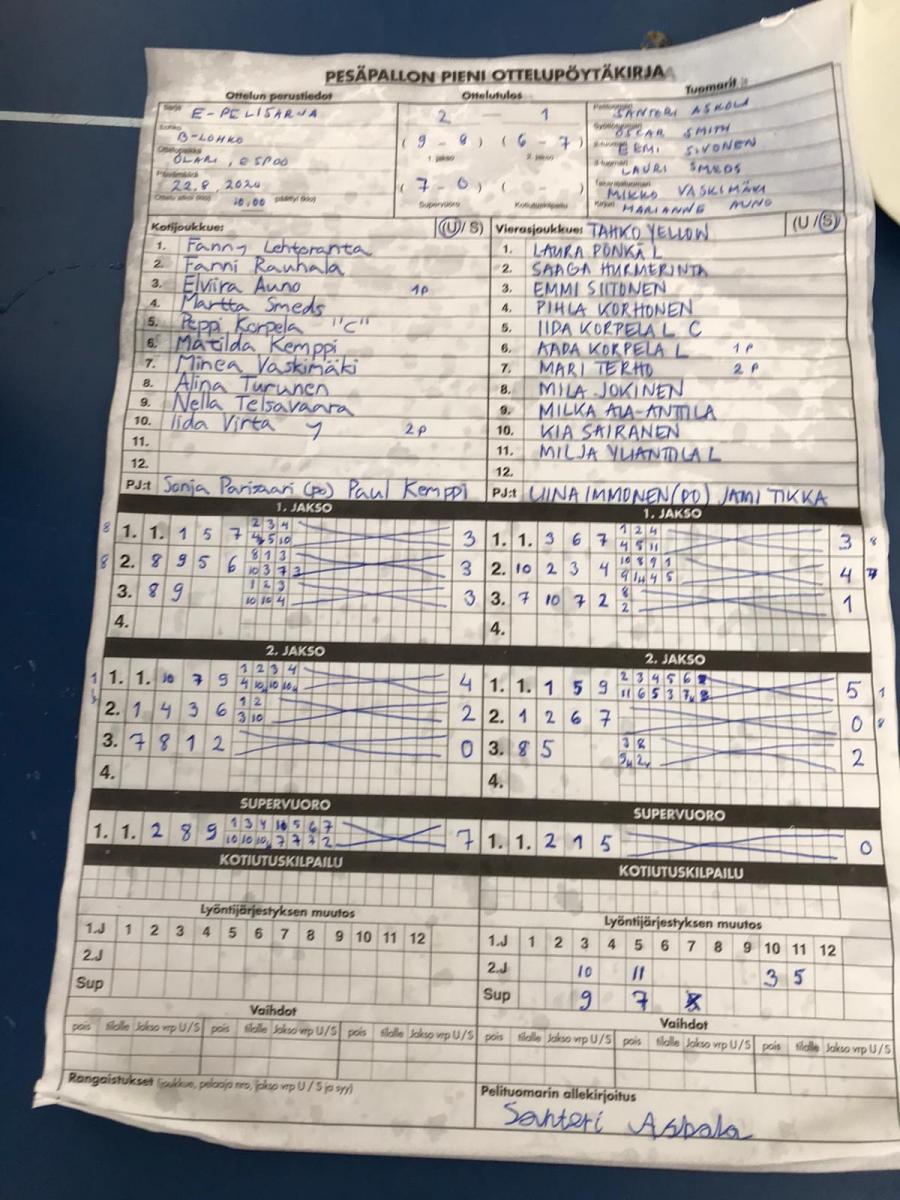 PESÄPALLON PIENI OTTELUPÖYTÄKIRJA
Ottelun perustiedot
Ottelutulos
Tuomarit
E-PELISARJA
Lohko
B-LOHKO
Ottelupaikka
OLARI, ESPOO
Päivämäärä
22.8.2020
Ottelu alkoi (klo) 10.00 päättyi (klo)
2 – 1
(9 - 8) (6 - 7)
1. jakso 2. jakso
(7 - 0) ( - )
Supervuoro Kotiutuskilpailu
SANTERI ASKOLA
OSCAR SMITH
EEMI SIVONEN
LAURI SMEDS
MIKKO VASKIMÄKI
MARIANNE AUNO
Kotijoukkue: (U/S)
1. Fanny Lehtoranta
2. Fanni Rauhala
3. Elviira Auno 1P
4. Martta Smeds
5. Peppi Korpela "C"
6. Matilda Kemppi
7. Minea Vaskimäki
8. Alina Turunen
9. Nella Telsavaara
10. Iida Virta 2P
11.
12.
PJ:t Sonja Parissaari (po) Paul Kemppi
Vierasjoukkue: TAHKO YELLOW (U/S)
1. LAURA PÖNKÄ L
2. SAAGA HURMERINTA
3. EMMI SIITONEN
4. PIHLA KORHONEN
5. IIDA KORPELA L C
6. AADA KORPELA L 1P
7. MARI TERHO 2P
8. MILA JOKINEN
9. MILKA ALA-ANTTILA
10. KIA SAIRANEN
11. MILJA YLIANTTILA L
12.
PJ:t LIINA IMMONEN (PO) JAMI TIKKA
1. JAKSO
8 1. 1. 1 5 7 2 3 4 3
4 5 10
8 2. 8 9 5 6 8 1 3 3
10 3 7 3
3. 8 9 1 2 3 3
10 10 4
4.
1. JAKSO
1. 1. 3 6 7 1 2 4 3 8
4 5 11
2. 10 2 3 4 10 8 9 1 4
9 11 4 5
3. 7 10 7 2 8 1
2
4.
2. JAKSO
1 1. 1. 10 7 9 1 2 3 4 4
4 10 10 10
2. 1 4 3 6 1 2 2
3 10
3. 7 8 1 2 0
4.
2. JAKSO
1. 1. 1 5 9 2 3 4 5 6 5 1
11 6 5 3 7
2. 1 2 6 7 0 8
3. 8 5 3 8 2
9 2
4.
SUPERVUORO
1. 1. 2 8 9 1 3 4 10 5 6 7 7
10 10 10 7 7 7 2
SUPERVUORO
1. 1. 2 1 5 0
KOTIUTUSKILPAILU
KOTIUTUSKILPAILU
Lyöntijärjestyksen muutos
1.J 1 2 3 4 5 6 7 8 9 10 11 12
2.J
Sup
Lyöntijärjestyksen muutos
1.J 1 2 3 4 5 6 7 8 9 10 11 12
2.J 10 11 3 5
Sup 9 7
Vaihdot
pois tilalle Jakso vrp U/S pois tilalle Jakso vrp U/S pois tilalle Jakso vrp U/S
Vaihdot
pois tilalle Jakso vrp U/S pois tilalle Jakso vrp U/S pois tilalle Jakso vrp U/S
Rangaistukset (joukkue, pelaaja nro, jakso vrp U / S ja syy)
Pelituomarin allekirjoitus
Santeri Askola